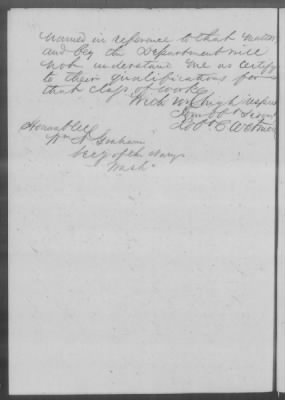 named in reference to that matter
and beg the Department will
not understand me as certify
to their qualifications for
that class of work
With very high respect
Your obt Servt
Robt E
Honorable
Wm A Graham
Secy of the Navy
Wash